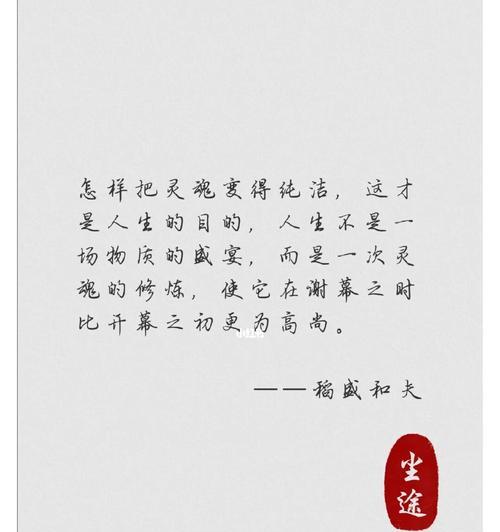 怎样把灵魂变得纯洁，这才
是人生的目的，人生不是一
场物质的盛宴，而是一次灵
魂的修炼，使它在谢幕之时
比开幕之初更为高尚。
——稻盛和夫
尘途